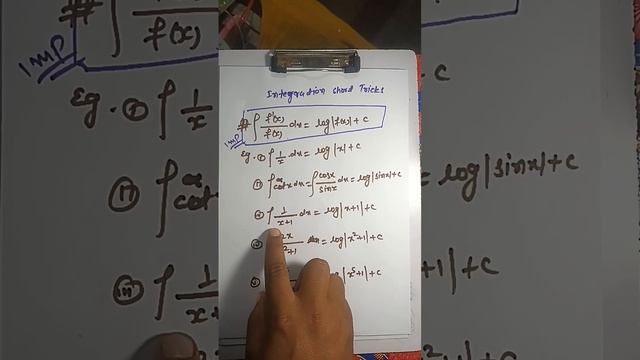 Integration Short Tricks
# ∫ f'(x)/f(x) dx = log|f(x)| + c
IMP
Eg. ① ∫ 1/x dx = log |x| + c
② ∫ cot x dx = ∫ cosx/sinx dx = log|sinx| + c
∫ 1/x+1 dx = log|x+1| + c
2x +1 dx = log|x²+1| + c
|x⁵+1| + c